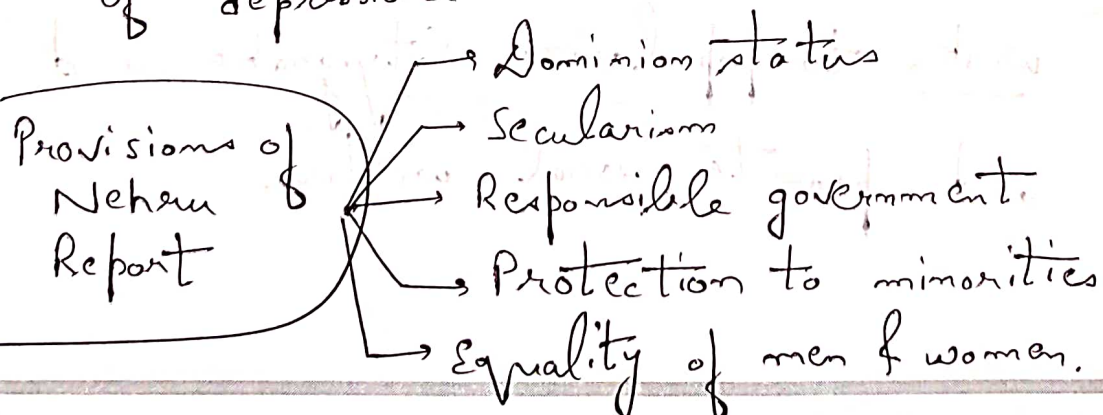 of
Provisions of
Nehru
Report
Dominion status
Secularism
Responsible government.
Protection to minorities
Equality of men & women.